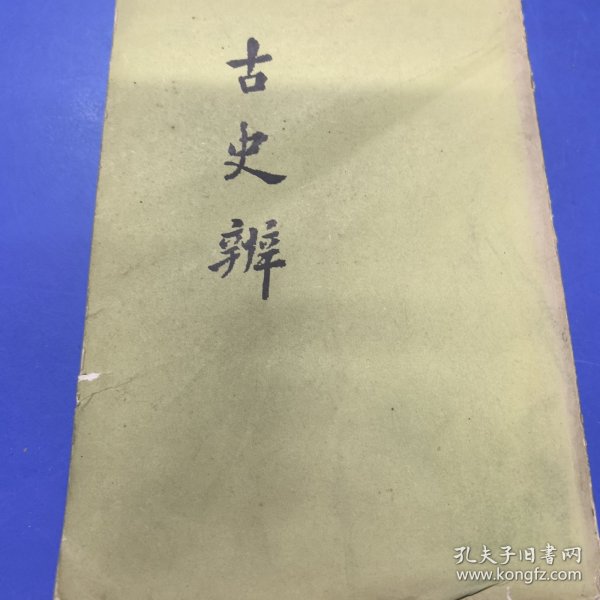 古史辨
孔夫子旧書网
www.kongfz.com